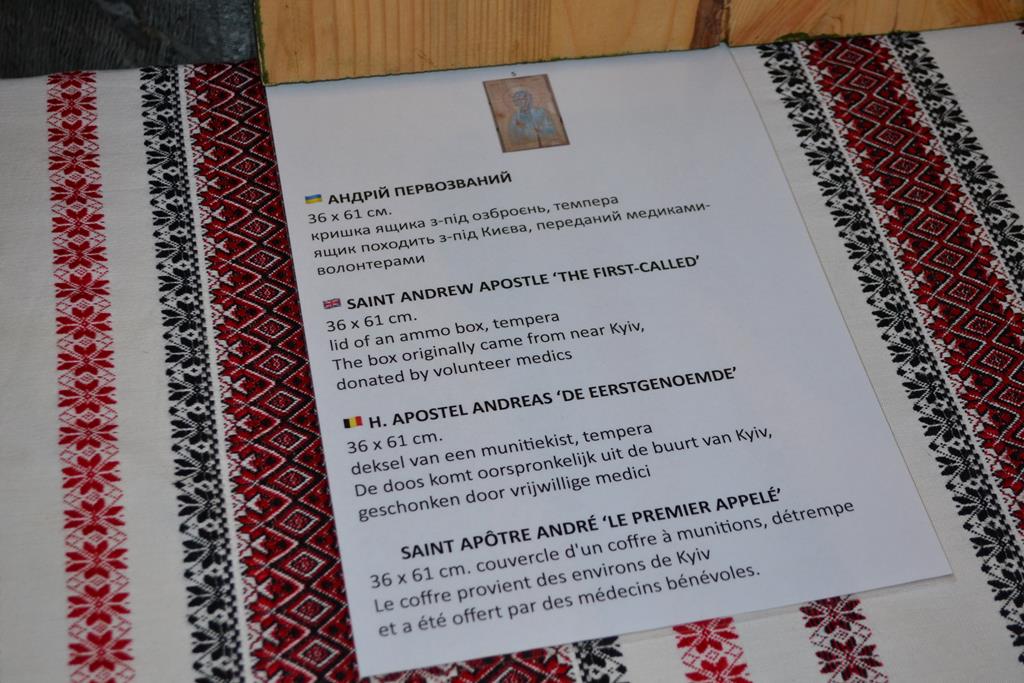 5
АНДРІЙ ПЕРВОЗВАНИЙ
36 x 61 см.
кришка ящика з-під озброєнь, темпера
ящик походить з-під Києва, переданий медиками-
волонтерами
SAINT ANDREW APOSTLE ‘THE FIRST-CALLED’
36 x 61 cm.
lid of an ammo box, tempera
The box originally came from near Kyiv,
donated by volunteer medics
H. APOSTEL ANDREAS ‘DE EERSTGENOEMDE’
36 x 61 cm.
deksel van een munitiekist, tempera
De doos komt oorspronkelijk uit de buurt van Kyiv,
geschonken door vrijwillige medici
SAINT APÔTRE ANDRÉ ‘LE PREMIER APPELÉ’
36 x 61 cm. couvercle d'un coffre à munitions, détrempe
Le coffre provient des environs de Kyiv
et a été offert par des médecins bénévoles.